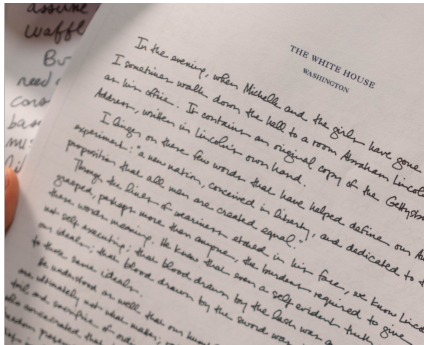 assume
waffle
Bu
need
cons
bas
mus
THE WHITE HOUSE
WASHINGTON
In the evening, when Michelle and the girls have gone
I sometimes walk down the hall to a room Abraham Lincoln
as his office. It contains an original copy of the Gettysb
Address, written in Lincoln's own hand.
I linger on these few words that have helped define our Am
experiment: "a new nation, conceived in liberty, and dedicated to t
proposition that all men are created equal."
Through the lines of weariness etched in his face, we know Linco
grasped, perhaps more than anyone, the burdens required to give
these words meaning. He knew that even a self evident truth
not self executing; that blood drawn by the lash was a
our ideals; that blood drawn by the sword was
to those same ideals.
He understood as well that our hum
are ultimately not what makes; w
toil and sacrifice of ordi
who consecrated that